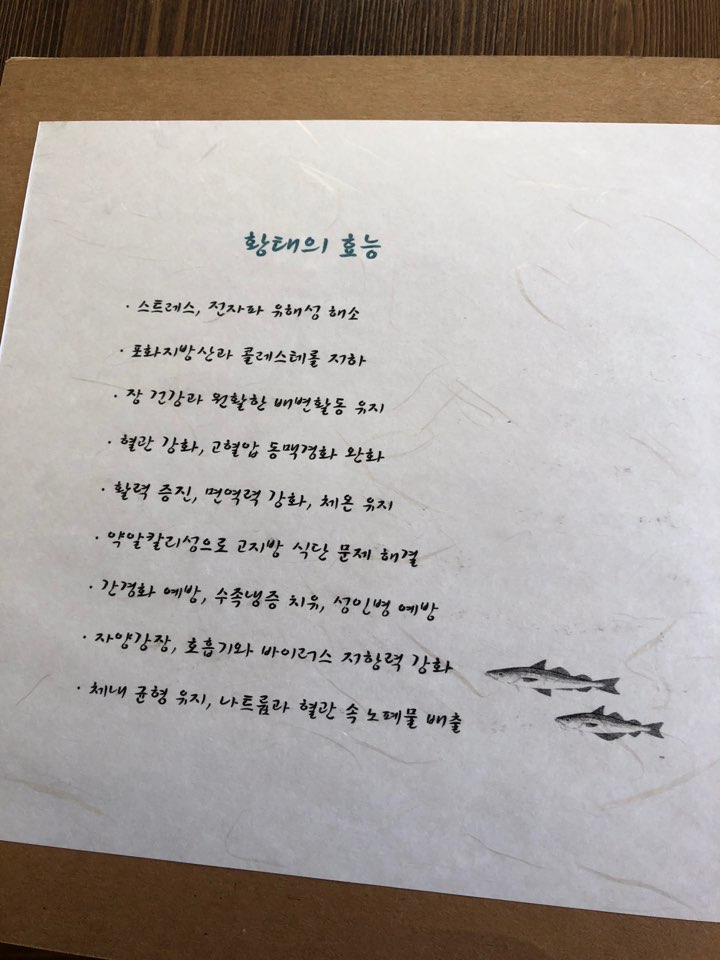 황태의 효능
· 스트레스, 전자파 유해성 해소
· 포화지방산과 콜레스테롤 저하
· 장 건강과 원활한 배변활동 유지
· 혈관 강화, 고혈압 동맥경화 완화
· 활력 증진, 면역력 강화, 체온 유지
· 약알칼리성으로 고지방 식단 문제 해결
· 간경화 예방, 수족냉증 치유, 성인병 예방
· 자양강장, 호흡기와 바이러스 저항력 강화
· 체내 균형 유지, 나트륨과 혈관 속 노폐물 배출